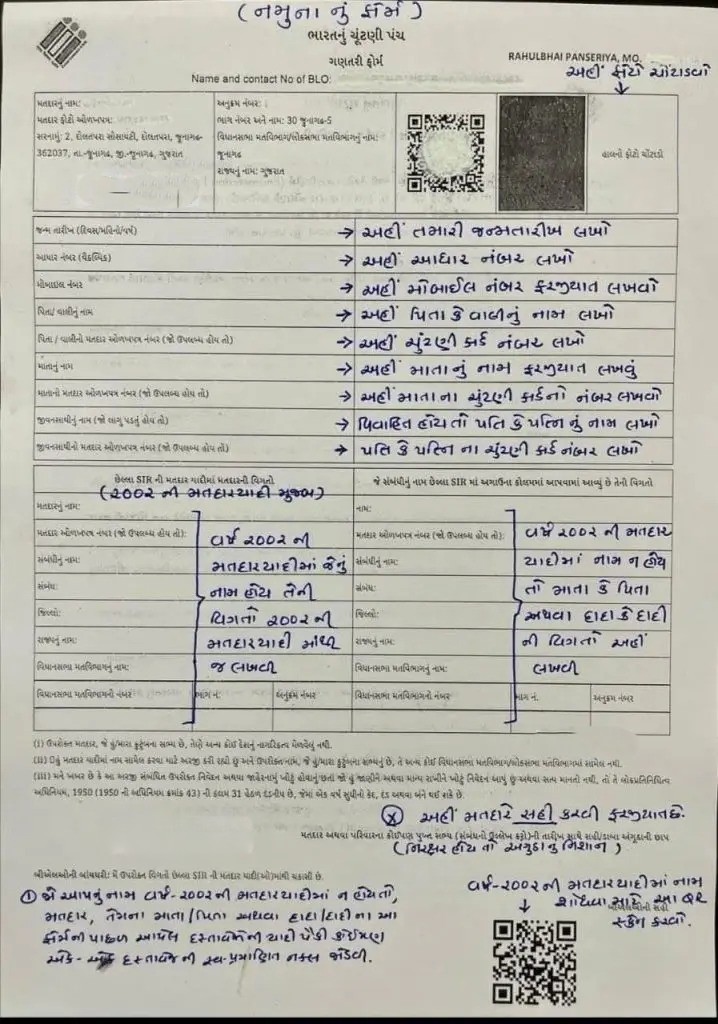 (નમુના નું ફોર્મ)
ભારતનું ચૂંટણી પંચ
ગણતરી ફોર્મ
RAHULBHAI PANSERIYA, MO.
Name and contact No of BLO:
અહીં ફોટો ચોંટાડવો
મતદારનું નામ:
મતદાર ફોટો ઓળખપત્ર:
સરનામું: 2, દોલતપરા સોસાયટી, દોલતપરા, જુનાગઢ-
362037, તા.-જુનાગઢ, જી.-જુનાગઢ, ગુજરાત
અનુક્રમ નંબર:
ભાગ નંબર અને નામ: 30 જુનાગઢ-5
વિધાનસભા મતવિભાગ/લોકસભા મતવિભાગનું નામ:
જુનાગઢ
રાજ્યનું નામ: ગુજરાત
હાલનો ફોટો ચોંટાડો
જન્મ તારીખ (દિવસ/મહિનો/વર્ષ) → અહીં તમારી જન્મતારીખ લખો
આધાર નંબર (વૈકલ્પિક) → અહીં આધાર નંબર લખો
મોબાઇલ નંબર → અહીં મોબાઈલ નંબર ફરજીયાત લખવો
પિતા/ વાલીનું નામ → અહીં પિતા કે વાલીનું નામ લખો
પિતા / વાલીનો મતદાર ઓળખપત્ર નંબર (જો ઉપલબ્ધ હોય તો) → અહીં ચુંટણી કાર્ડ નંબર લખો
માતાનું નામ → અહીં માતાનું નામ ફરજીયાત લખવું
માતાનો મતદાર ઓળખપત્ર નંબર (જો ઉપલબ્ધ હોય તો) → અહીં માતાના ચુંટણી કાર્ડનો નંબર લખવો
જીવનસાથીનું નામ (જો લાગુ પડતું હોય તો) → વિવાહિત હોય તો પતિ કે પત્નિ નું નામ લખો
જીવનસાથીનો મતદાર ઓળખપત્ર નંબર (જો ઉપલબ્ધ હોય તો) → પતિ કે પત્નિ ના ચુંટણી કાર્ડ નંબર લખો
છેલ્લા SIR ની મતદાર યાદીમાં મતદારની વિગતો
(૨૦૦૨ ની મતદારયાદી મુજબ)
મતદારનું નામ:
મતદાર ઓળખપત્ર નંબર (જો ઉપલબ્ધ હોય તો):
સંબંધીનું નામ:
સંબંધ:
જિલ્લો:
રાજ્યનું નામ:
વિધાનસભા મતવિભાગનું નામ:
વિધાનસભા મતવિભાગનો નંબર ભાગ નં. અનુક્રમ નંબર
વર્ષ ૨૦૦૨ ની
મતદારયાદીમાં જેનું
નામ હોય તેની
વિગતો ૨૦૦૨ ની
મતદારયાદી માંથી
જ લખવી
જે સંબંધીનું નામ છેલ્લા SIR માં અગાઉના કોલમમાં આપવામાં આવ્યું છે તેની વિગતો
નામ:
મતદાર ઓળખપત્ર નંબર (જો ઉપલબ્ધ હોય તો):
સંબંધીનું નામ:
સંબંધ:
જિલ્લો:
રાજ્યનું નામ:
વિધાનસભા મતવિભાગનું નામ:
વિધાનસભા મતવિભાગનો નંબર ભાગ નં. અનુક્રમ નંબર
વર્ષ ૨૦૦૨ ની મતદાર
યાદીમાં નામ ન હોય
તો માતા કે પિતા
અથવા દાદા કે દાદી
ની વિગતો અહીં
લખવી
(i) ઉપરોક્ત મતદાર, જે હું/મારા કુટુંબના સભ્ય છે, તેણે અન્ય કોઈ દેશનું નાગરિકત્વ મેળવેલું નથી.
(ii) હું મતદાર યાદીમાં નામ સામેલ કરવા માટે અરજી કરી રહ્યો છું અને ઉપરોક્ત નામ, જે હું/મારા કુટુંબના સભ્યનું છે, તે અન્ય કોઈ વિધાનસભા મતવિભાગ/લોકસભા મતવિભાગમાં સામેલ નથી.
(iii) મને ખબર છે કે આ અરજી સંબંધિત ઉપરોક્ત નિવેદન અથવા જાહેરનામું ખોટું હોવાનું/છતાં જો હું જાણીને અથવા માન્ય રાખીને ખોટું નિવેદન આપું છું અથવા સત્ય માનતો નથી. તો તે લોકપ્રતિનિધિત્વ
અધિનિયમ, 1950 (1950 ની અધિનિયમ ક્રમાંક 43) ની કલમ 31 હેઠળ દંડનીય છે, જેમાં એક વર્ષ સુધીનો કેદ, દંડ અથવા બંને થઈ શકે છે.
અહીં મતદારે સહી કરવી ફરજીયાત છે.
મતદાર અથવા પરિવારના કોઈપણ પુખ્ત સભ્ય (સંબંધનો ઉલ્લેખ કરો) ની તારીખ સાથે સહી/ડાબા અંગૂઠાની છાપ
(નિરક્ષર હોય તો અંગુઠાનું નિશાન)
બીએલઓની બાંયધરી: મેં ઉપરોક્ત વિગતો છેલ્લા SIR ની મતદાર યાદી(ઓ)માંથી ચકાસી છે.
① જો આપનું નામ વર્ષ-૨૦૦૨ની મતદારયાદીમાં ન હોય તો,
મતદાર, તેમના માતા/પિતા અથવા દાદા/દાદી ના આ
ફોર્મની પાછળ આપેલ દસ્તાવેજોની યાદી પૈકી કોઈપણ
એક-એક દસ્તાવેજની સ્વ-પ્રમાણિત નકલ જોડવી.
વર્ષ-૨૦૦૨ની મતદારયાદીમાં નામ
શોધવા માટે આ QR
સ્કેન કરવો.
બીએલઓની સહી